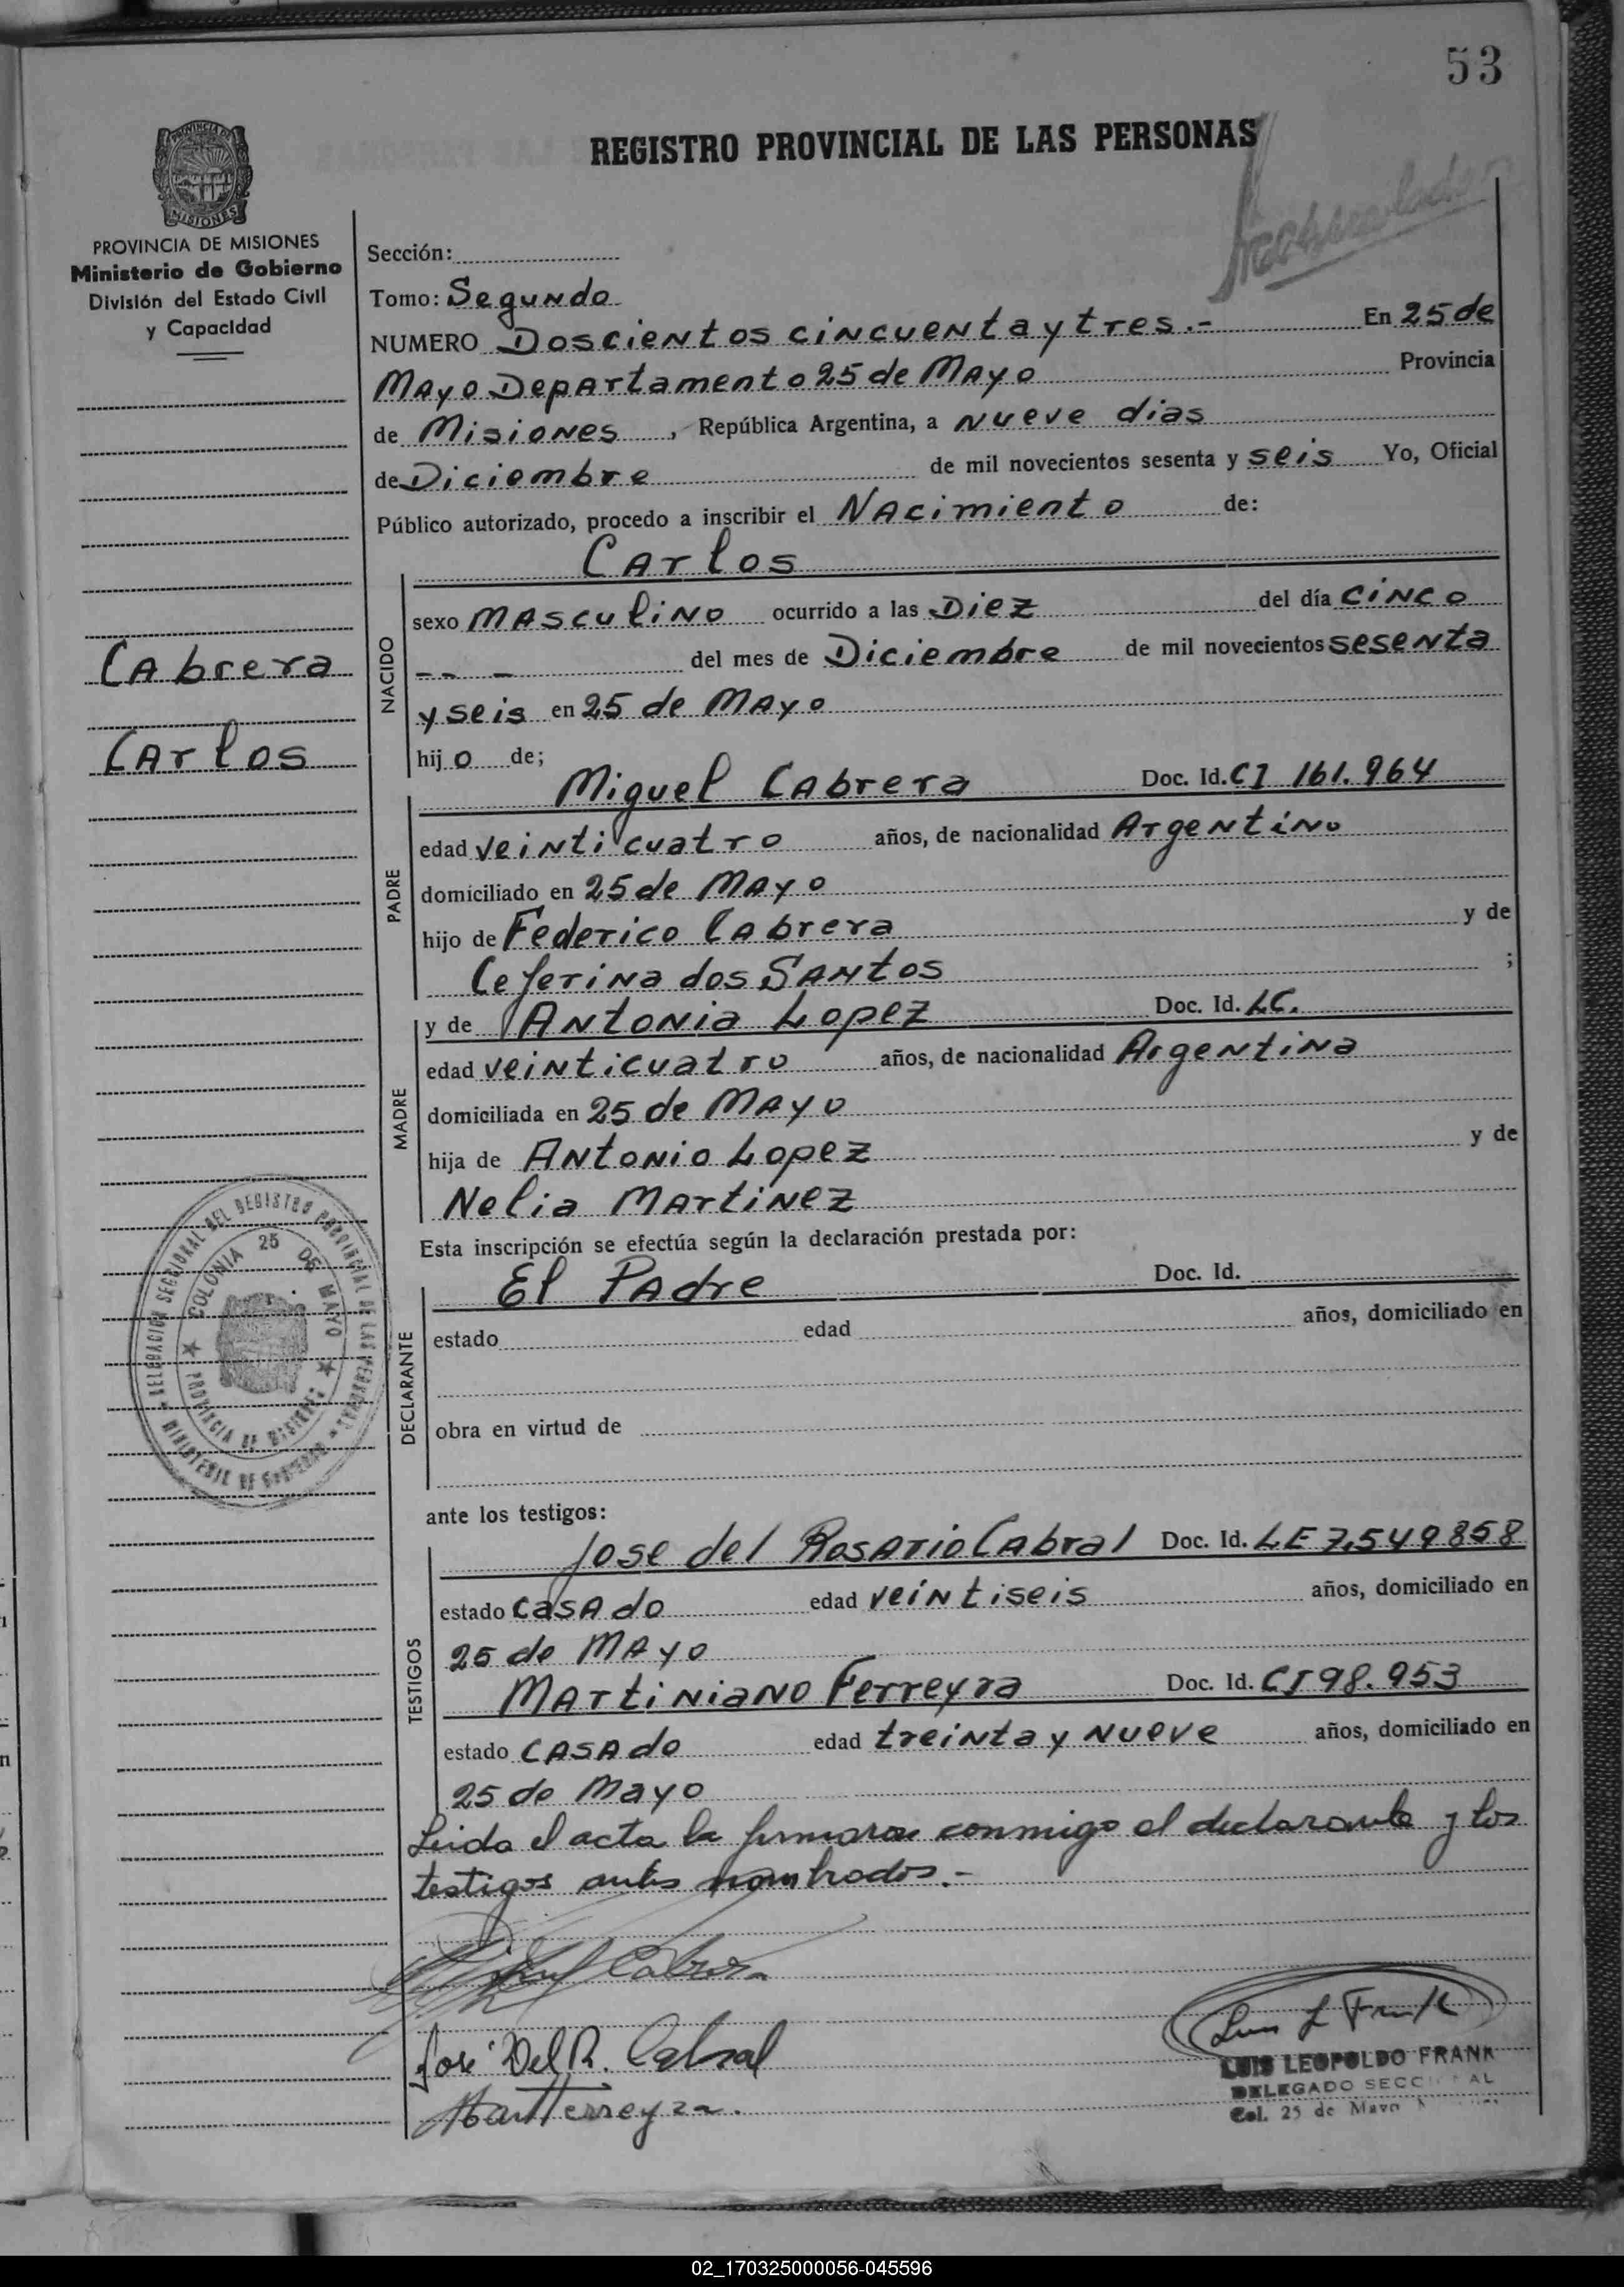 53
REGISTRO PROVINCIAL DE LAS PERSONAS
PROVINCIA DE MISIONES
Ministerio de Gobierno
División del Estado Civil
y Capacidad
Sección:
Tomo: Segundo
NUMERO Doscientos cincuenta y tres.- En 25 de
Mayo Departamento 25 de Mayo Provincia
de Misiones, República Argentina, a nueve dias
de Diciembre de mil novecientos sesenta y seis Yo, Oficial
Público autorizado, procedo a inscribir el Nacimiento de:
Carlos
Cabrera
Carlos
NACIDO
sexo masculino ocurrido a las Diez del día cinco
-- - del mes de Diciembre de mil novecientos sesenta
y seis en 25 de Mayo
hijo de;
Miguel Cabrera Doc. Id. CI 161.964
PADRE
edad veinticuatro años, de nacionalidad Argentino
domiciliado en 25 de Mayo
hijo de Federico Cabrera y de
Ceferina dos Santos ;
MADRE
y de Antonia Lopez Doc. Id. LC.
edad veinticuatro años, de nacionalidad Argentina
domiciliada en 25 de Mayo
hija de Antonio Lopez y de
Nelia Martinez
Esta inscripción se efectúa según la declaración prestada por:
DECLARANTE
El Padre Doc. Id.
estado edad años, domiciliado en
obra en virtud de
DELEGACION SECCIONAL DEL REGISTRO PROVINCIAL DE LAS PERSONAS
MINISTERIO DE GOBIERNO
COLONIA 25 DE MAYO
PROVINCIA DE MISIONES
ante los testigos:
TESTIGOS
Jose del Rosario Cabral Doc. Id. LE 7.549858
estado casado edad veintiseis años, domiciliado en
25 de Mayo
Martiniano Ferreyra Doc. Id. CI 98.953
estado casado edad treinta y nueve años, domiciliado en
25 de Mayo
Leida el acta la firmaron conmigo el declarante y los
testigos antes nombrados.-
Miguel Cabrera
José Del R. Cabral
Mart Ferreyra.
Luis L Frank
LUIS LEOPOLDO FRANK
DELEGADO SECCIONAL
Col. 25 de Mayo
02_170325000056-045596